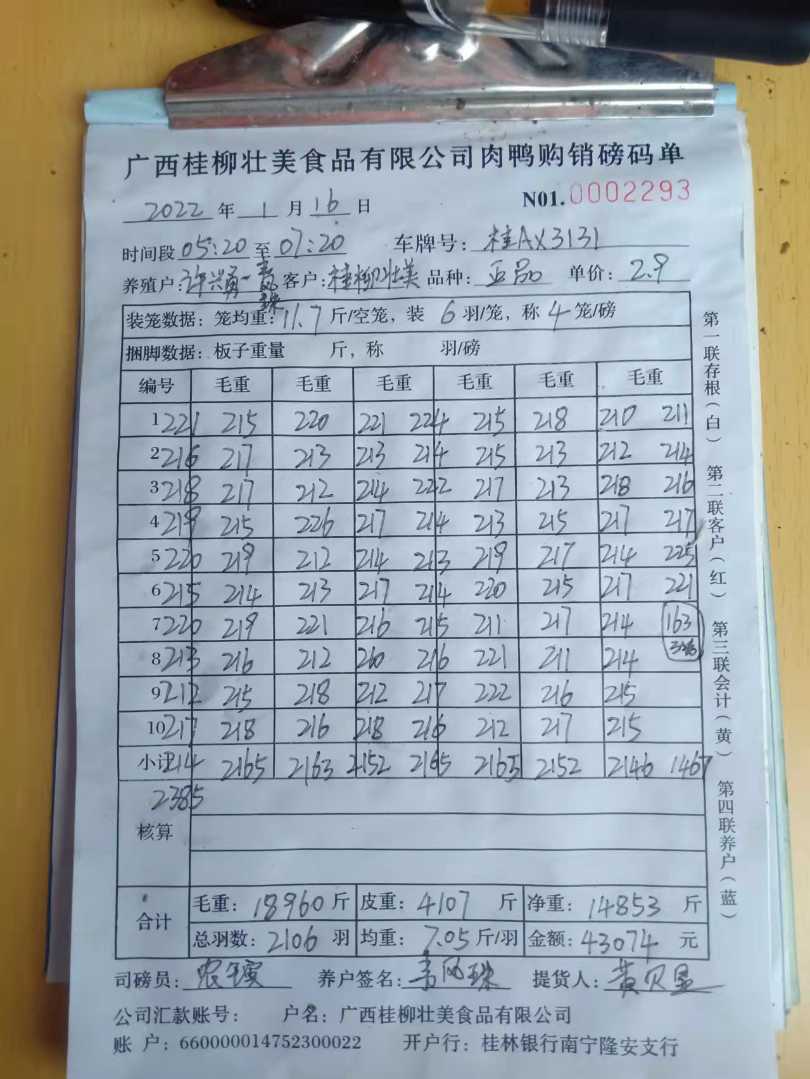 广西桂柳壮美食品有限公司肉鸭购销磅码单
2022 年 1 月 16 日 N01.0002293
时间段 05:20 至 07:20 车牌号: 桂AX3131
养殖户: 许兴勇 客户: 桂柳壮美 品种: 正品 单价: 2.9
装笼数据: 笼均重: 11.7 斤/空笼, 装 6 羽/笼, 称 4 笼/磅
捆脚数据: 板子重量 斤, 称 羽/磅
编号 毛重 毛重 毛重 毛重 毛重 毛重
1 221 215 220 221 224 215 218 210 211
2 216 217 213 213 214 215 213 212 214
3 218 217 212 214 222 217 213 218 216
4 219 215 226 217 214 213 215 217 217
5 220 219 212 214 213 219 217 214 225
6 215 214 213 217 214 220 215 217 221
7 220 219 221 216 215 211 217 214 163
8 213 216 212 216 221 211 214
9 212 215 218 212 217 222 216 215
10 217 218 216 218 216 212 217 215
小计 2165 2163 2152 2165 2165 2152 2146 1467
2385
核算
合计 毛重: 18960 斤 皮重: 4107 斤 净重: 14853 斤
总羽数: 2106 羽 均重: 7.05 斤/羽 金额: 43074 元
司磅员: 养户签名: 韦凤珠 提货人:
公司汇款账号: 户名: 广西桂柳壮美食品有限公司
账 户: 660000014752300022 开户行: 桂林银行南宁隆安支行
第一联存根(白) 第二联客户(红) 第三联会计(黄) 第四联养户(蓝)